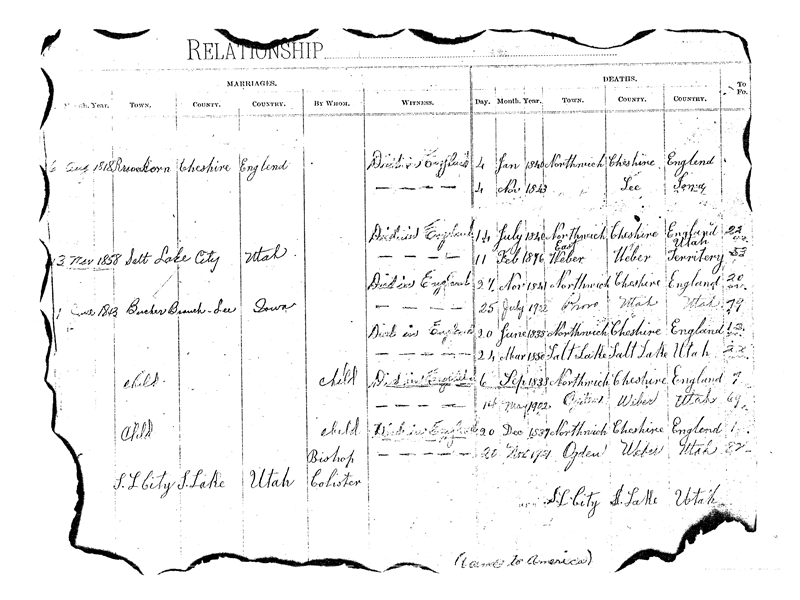 RELATIONSHIP
MARRIAGES. DEATHS.
Month. Year. TOWN. COUNTY. COUNTRY. BY WHOM. WITNESS. Day. Month. Year. TOWN. COUNTY. COUNTRY. To Fo.
Aug 1818 Cheshire Englend Died in England 4 Jan 1840 Northwich Cheshire Englend
4 Nov 1843 Lee
Died in England 14 July 1840 Northwich Cheshire England
3 Nov 1858 Salt Lake City Utah 11 Feb 1896 East Weber Weber Utah Territory 53
Died in England 27 Nov 1841 Northwich Cheshire England 20
1 June 1843 Branch - Lee Iowa 25 July Provo Utah Utah 79
Died in England 20 June 1838 Northwich Cheshire England
24 Mar 1850 Salt Lake Salt Lake Utah
child child Died in England 6 Sep 1833 Northwich Cheshire England 7
May 1902 Weber Utah 69
Child child Died in England 20 Dec 1837 Northwich Cheshire Englend 1
Bishop Ogden Weber Utah 82
S. L. City S. Lake Utah Colister
S. L. City S. Lake Utah
(Came to America)